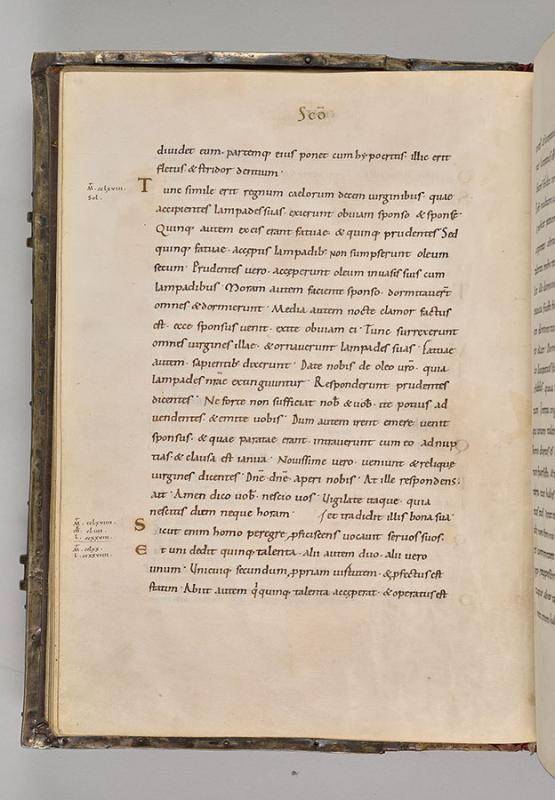 Scō
diuidet eum. partemq; eius ponet cum hypocritis. illic erit
fletus & stridor dentium.
Tunc simile erit regnum caelorum decem uirginibus. quae
accipientes lampades suas. exierunt obuiam sponso & sponse.
Quinq; autem ex eis erant fatuae. & quinq; prudentes. Sed
quinq; fatuae. acceptis lampadib; non sumpserunt oleum
secum. Prudentes uero. acceperunt oleum in uasis suis cum
lampadibus. Moram autem faciente sponso. dormitauerūt
omnes & dormierunt. Media autem nocte clamor factus
est. ecce sponsus uenit. exite obuiam ei. Tunc surrexerunt
omnes uirgines illae. & ornauerunt lampades suas. Fatuae
autem. sapientib; dixerunt. Date nobis de oleo uro. quia
lampades nrae extinguuntur. Responderunt prudentes
dicentes. Ne forte non sufficiat nob & uob. ite potius ad
uendentes. & emite uobis. Dum autem irent emere. uenit
sponsus. & quae paratae erant. intrauerunt cum eo ad nup
tias. & clausa est ianua. Nouissime uero. ueniunt & relique
uirgines dicentes. Dne. dne. aperi nobis. At ille respondens.
ait. Amen dico uob. nescio uos. Uigilate itaque. quia
nescitis diem neque horam. et tradidit illis bona sua.
Sicut enim homo peregre pficiscens uocauit seruos suos.
Et uni dedit quinq; talenta. alii autem duo. alii uero
unum. Unicuiq; secundum ppriam uirtutem. & pfectus est
statim. Abiit autem qi quinq; talenta acceperat. & operatus est
m̄. cclxviii.
Sol.
m̄. cclxviiii.
m̄. cclxx.